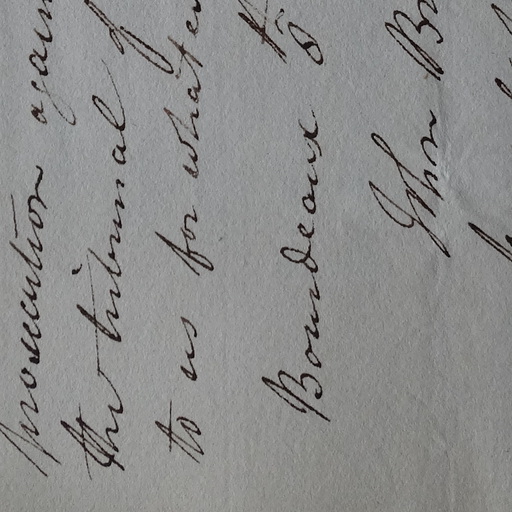 prosecution again
the tribunal of
to us for whatev
Bourdeaux
John Br